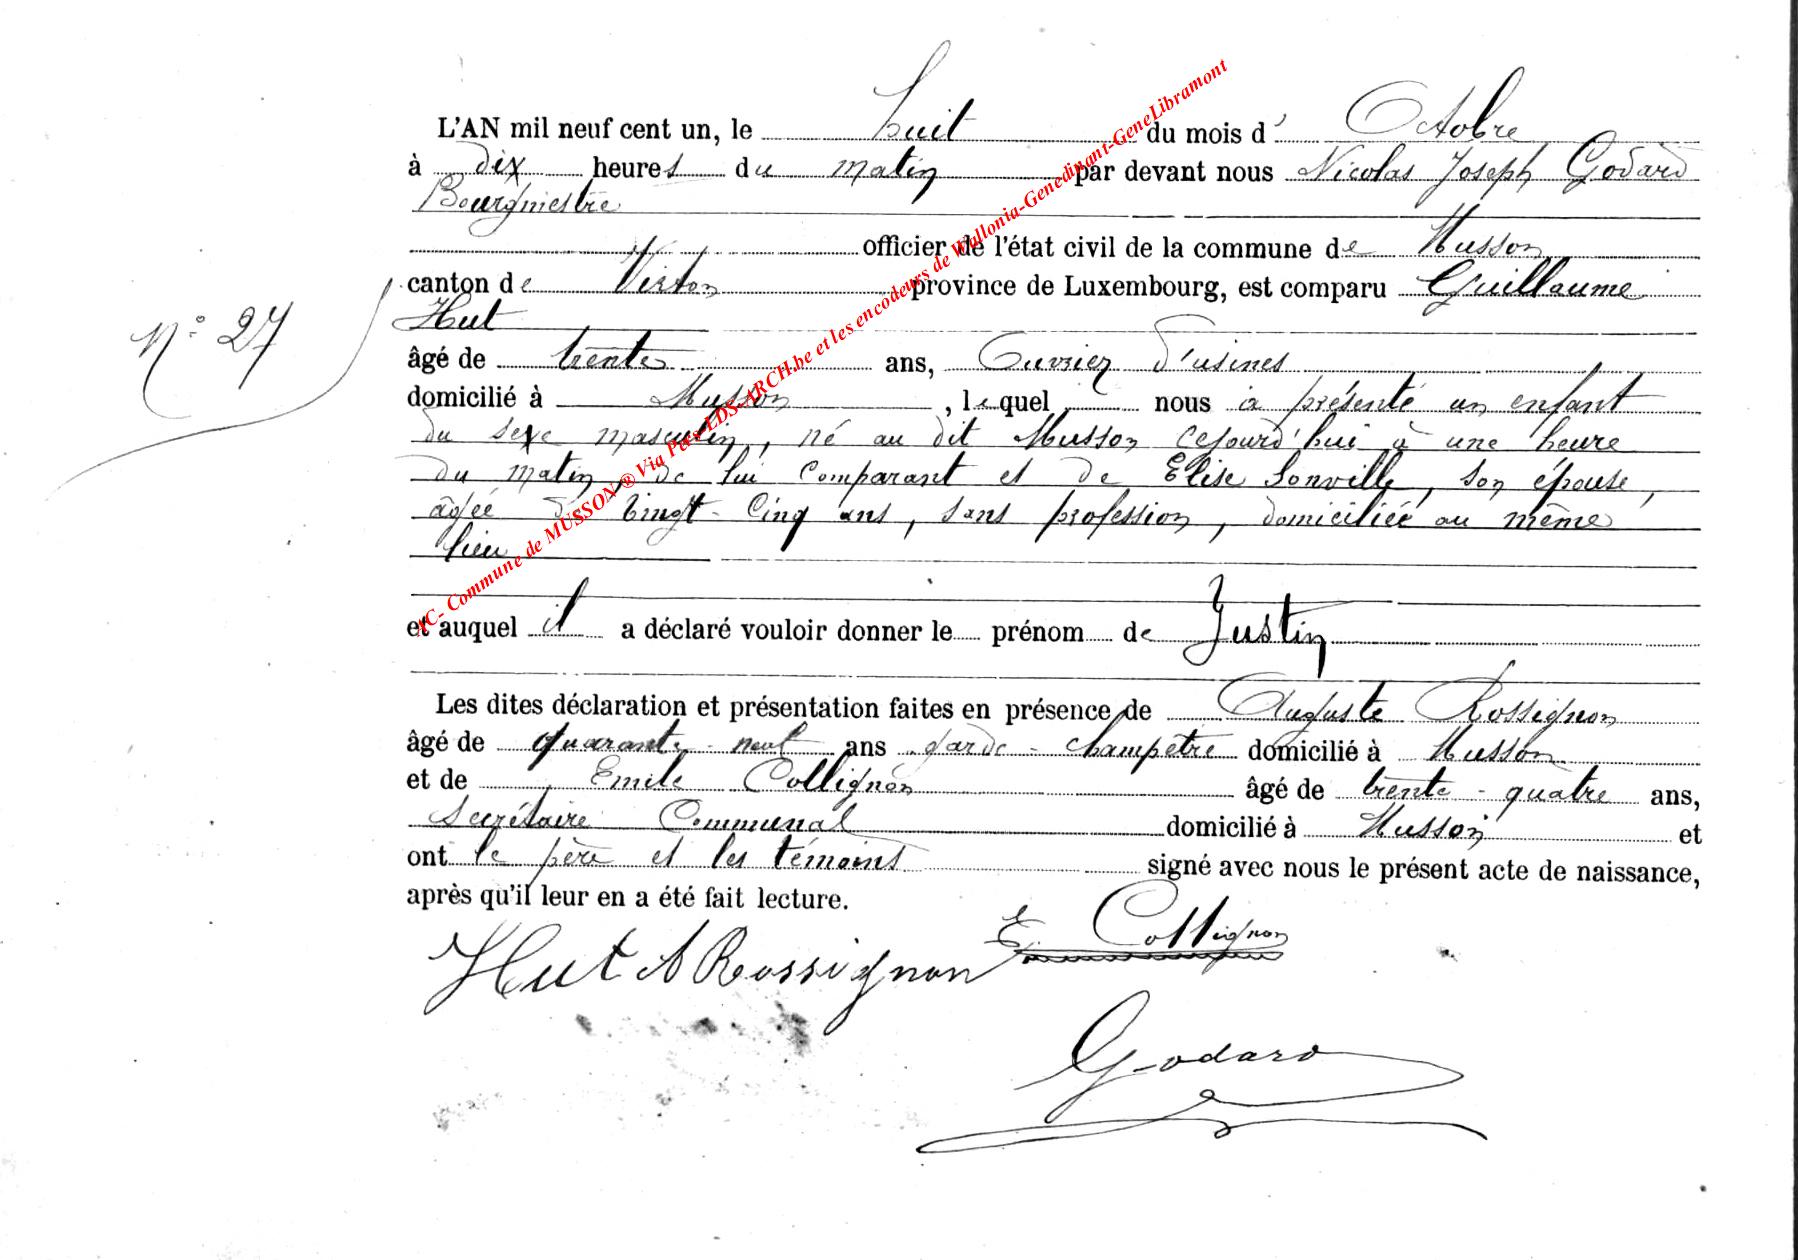 L'AN mil neuf cent un, le huit du mois d' Octobre
à dix heures du matin par devant nous Nicolas Joseph Godard
Bourgmestre
officier de l'état civil de la commune de Musson
canton de Virton province de Luxembourg, est comparu Guillaume
Hut
N° 27
âgé de trente ans, Ouvrier d'usines
domicilié à Musson, lequel nous a présenté un enfant
du sexe masculin, né au dit Musson cejourd'hui à une heure
du matin, de lui comparant et de Elise Sonville, son épouse,
âgée de vingt-cinq ans, sans profession, domiciliée au même
lieu
et auquel il a déclaré vouloir donner le prénom de Justin
Les dites déclaration et présentation faites en présence de Auguste Rossignon
âgé de quarante-neuf ans garde-champêtre domicilié à Musson
et de Emile Collignon âgé de trente-quatre ans,
Secrétaire Communal domicilié à Musson et
ont le père et les témoins signé avec nous le présent acte de naissance,
après qu'il leur en a été fait lecture.
Hut A Rossignon E. Collignon
Godard
AC- Commune de MUSSON ® Via Pero-EDS-ARCH.be et les encodeurs de Wallonia-Genedinant-GeneLibramont